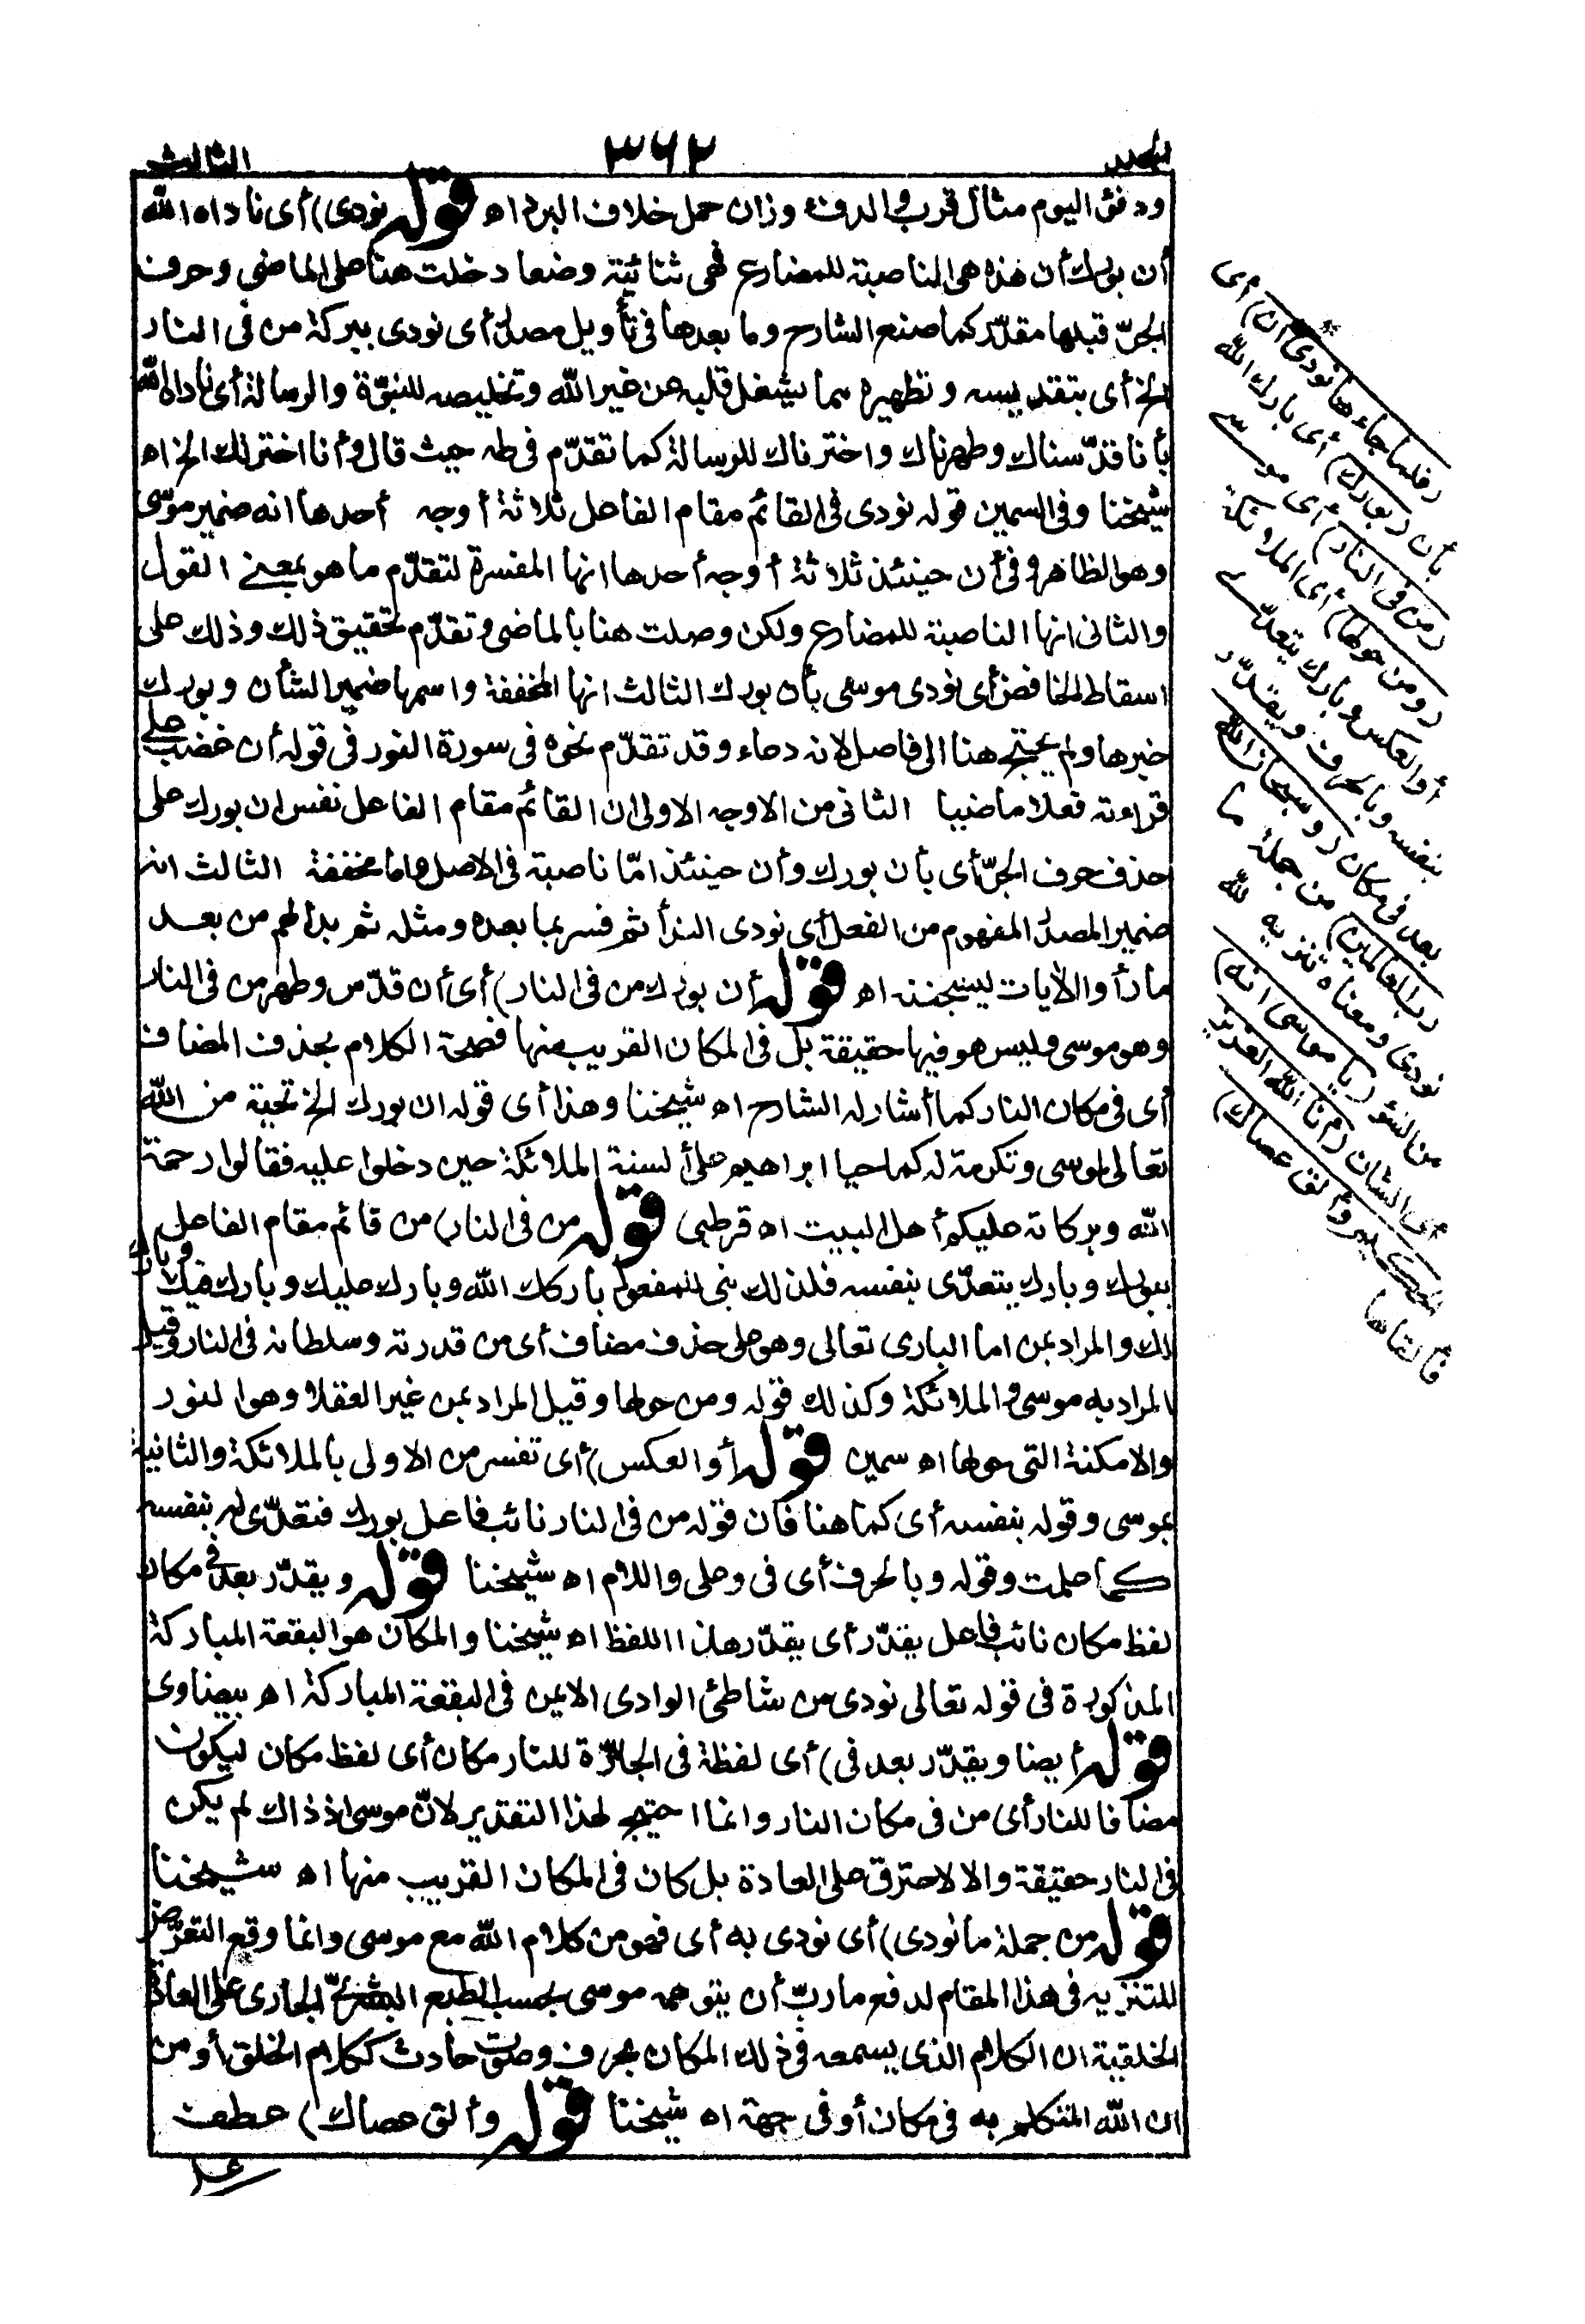 المجلد
٣٦٢
الثالث
ودفئ اليوم مثال قرب والدفء وزان حمل خلاف البرد اه قوله نودى) أى ناداه الله
أن بورك أن هذه هى الناصبة للمضارع فهى ثنائية وضعا دخلت هنا على الماضى وحرف
الجرّ قبلها مقدّر كما صنع الشارح وما بعدها فى تأويل مصدر أى نودى ببركة من فى النار
الخ أى بتقديسه وتطهيره مما يشغل قلبه عن غير الله وتخليصه للنبوّة والرسالة أى ناداه الله
بأنا قدّسناك وطهرناك واخترناك للرسالة كما تقدّم فى طه حيث قال وأنا اخترتك الخ اه
شيخنا وفى السمين قوله نودى فى القائم مقام الفاعل ثلاثة أوجه أحدها انه ضمير موسى
وهو الظاهر وفى أن حينئذ ثلاثة أوجه أحدها انها المفسرة لتقدّم ما هو بمعنى القول
والثانى انها الناصبة للمضارع ولكن وصلت هنا بالماضى وتقدّم تحقيق ذلك وذلك على
اسقاط الخافض أى نودى موسى بأن بورك الثالث انها المخففة واسمها ضمير الشأن وبورك
خبرها ولم يحتج هنا الى فاصل لانه دعاء وقد تقدّم نحوه فى سورة النور فى قوله أن غضب على
قراءته فعلا ماضيا الثانى من الاوجه الاولى ان القائم مقام الفاعل نفس ان بورك على
حذف حرف الجرّ أى بأن بورك وأن حينئذ امّا ناصبة فى الاصل واما مخففة الثالث انه
ضمير المصدر المفهوم من الفعل أى نودى الندأ ثم فسر بما بعده ومثله ثم بدا لهم من بعد
مارأوا الآيات ليسجننه اه قوله أن بورك من فى النار) أى أن قدّس وطهر من فى النار
وهو موسى وليس هو فيها حقيقة بل فى المكان القريب منها فصحة الكلام بحذف المضاف
أى فى مكان النار كما أشار له الشارح اه شيخنا وهذا أى قوله ان بورك الخ تحية من الله
تعالى لموسى وتكرمة له كما حيا ابراهيم على ألسنة الملائكة حين دخلوا عليه فقالوا رحمة
الله وبركاته عليكم أهل البيت اه قرطبى قوله من فى النار) من قائم مقام الفاعل
ببورك وبارك يتعدّى بنفسه فلذلك بنى للمفعول باركك الله وبارك عليك وبارك فيك وبارك
لك والمراد بمن اما البارى تعالى وهو على حذف مضاف أى من قدرته وسلطانه فى النار وقيل
المراد به موسى والملائكة وكذلك قوله ومن حولها وقيل المراد بمن غير العقلا وهو النور
والامكنة التى حولها اه سمين قوله أو العكس) أى تفسر من الاولى بالملائكة والثانية
بموسى وقوله بنفسه أى كما هنا فان قوله من فى النار نائب فاعل بورك فتعدّى له بنفسه
كما علمت وقوله وبالحرف أى فى وعلى واللام اه شيخنا قوله ويقدّر بعد فى مكان
لفظ مكان نائب فاعل يقدّر أى يقدّر هذا اللفظ اه شيخنا والمكان هو البقعة المباركة
المذكورة فى قوله تعالى نودى من شاطئ الوادى الايمن فى البقعة المباركة اه بيضاوى
قوله أيضا ويقدّر بعد فى) أى لفظة فى الجارّة للنار مكان أى لفظ مكان ليكون
مضافا للنار أى من فى مكان النار وانما احتيج لهذا التقدير لانّ موسى اذ ذاك لم يكن
فى النار حقيقة والا لاحترق على العادة بل كان فى المكان القريب منها اه شيخنا
قوله من جملة ما نودى) أى نودى به أى فهو من كلام الله مع موسى وانما وقع التعرّض
للتنزيه فى هذا المقام لدفع ما ربّ أن يتوهمه موسى بحسب الطبع البشرىّ الجارى على العادة
الخلقية ان الكلام الذى يسمعه فى ذلك المكان بحرف وصوت حادث ككلام الخلق أو من
ان الله المتكلم به فى مكان أو فى جهة اه شيخنا قوله وألق عصاك) عطف
على
(فلما جاءها نودى أن) أى
بأن (بورك) أى بارك الله
(من فى النار) أى موسى
(ومن حولها) أى الملائكة
أو العكس وبارك يتعدّى
بنفسه وبالحرف ويقدّر
بعد فى مكان (وسبحان الله
رب العالمين) من جملة ما
نودى ومعناه تنزيه الله
من السوء (يا موسى انه)
أى الشان (أنا الله العزيز
الحكيم وألق عصاك)
فألقاها